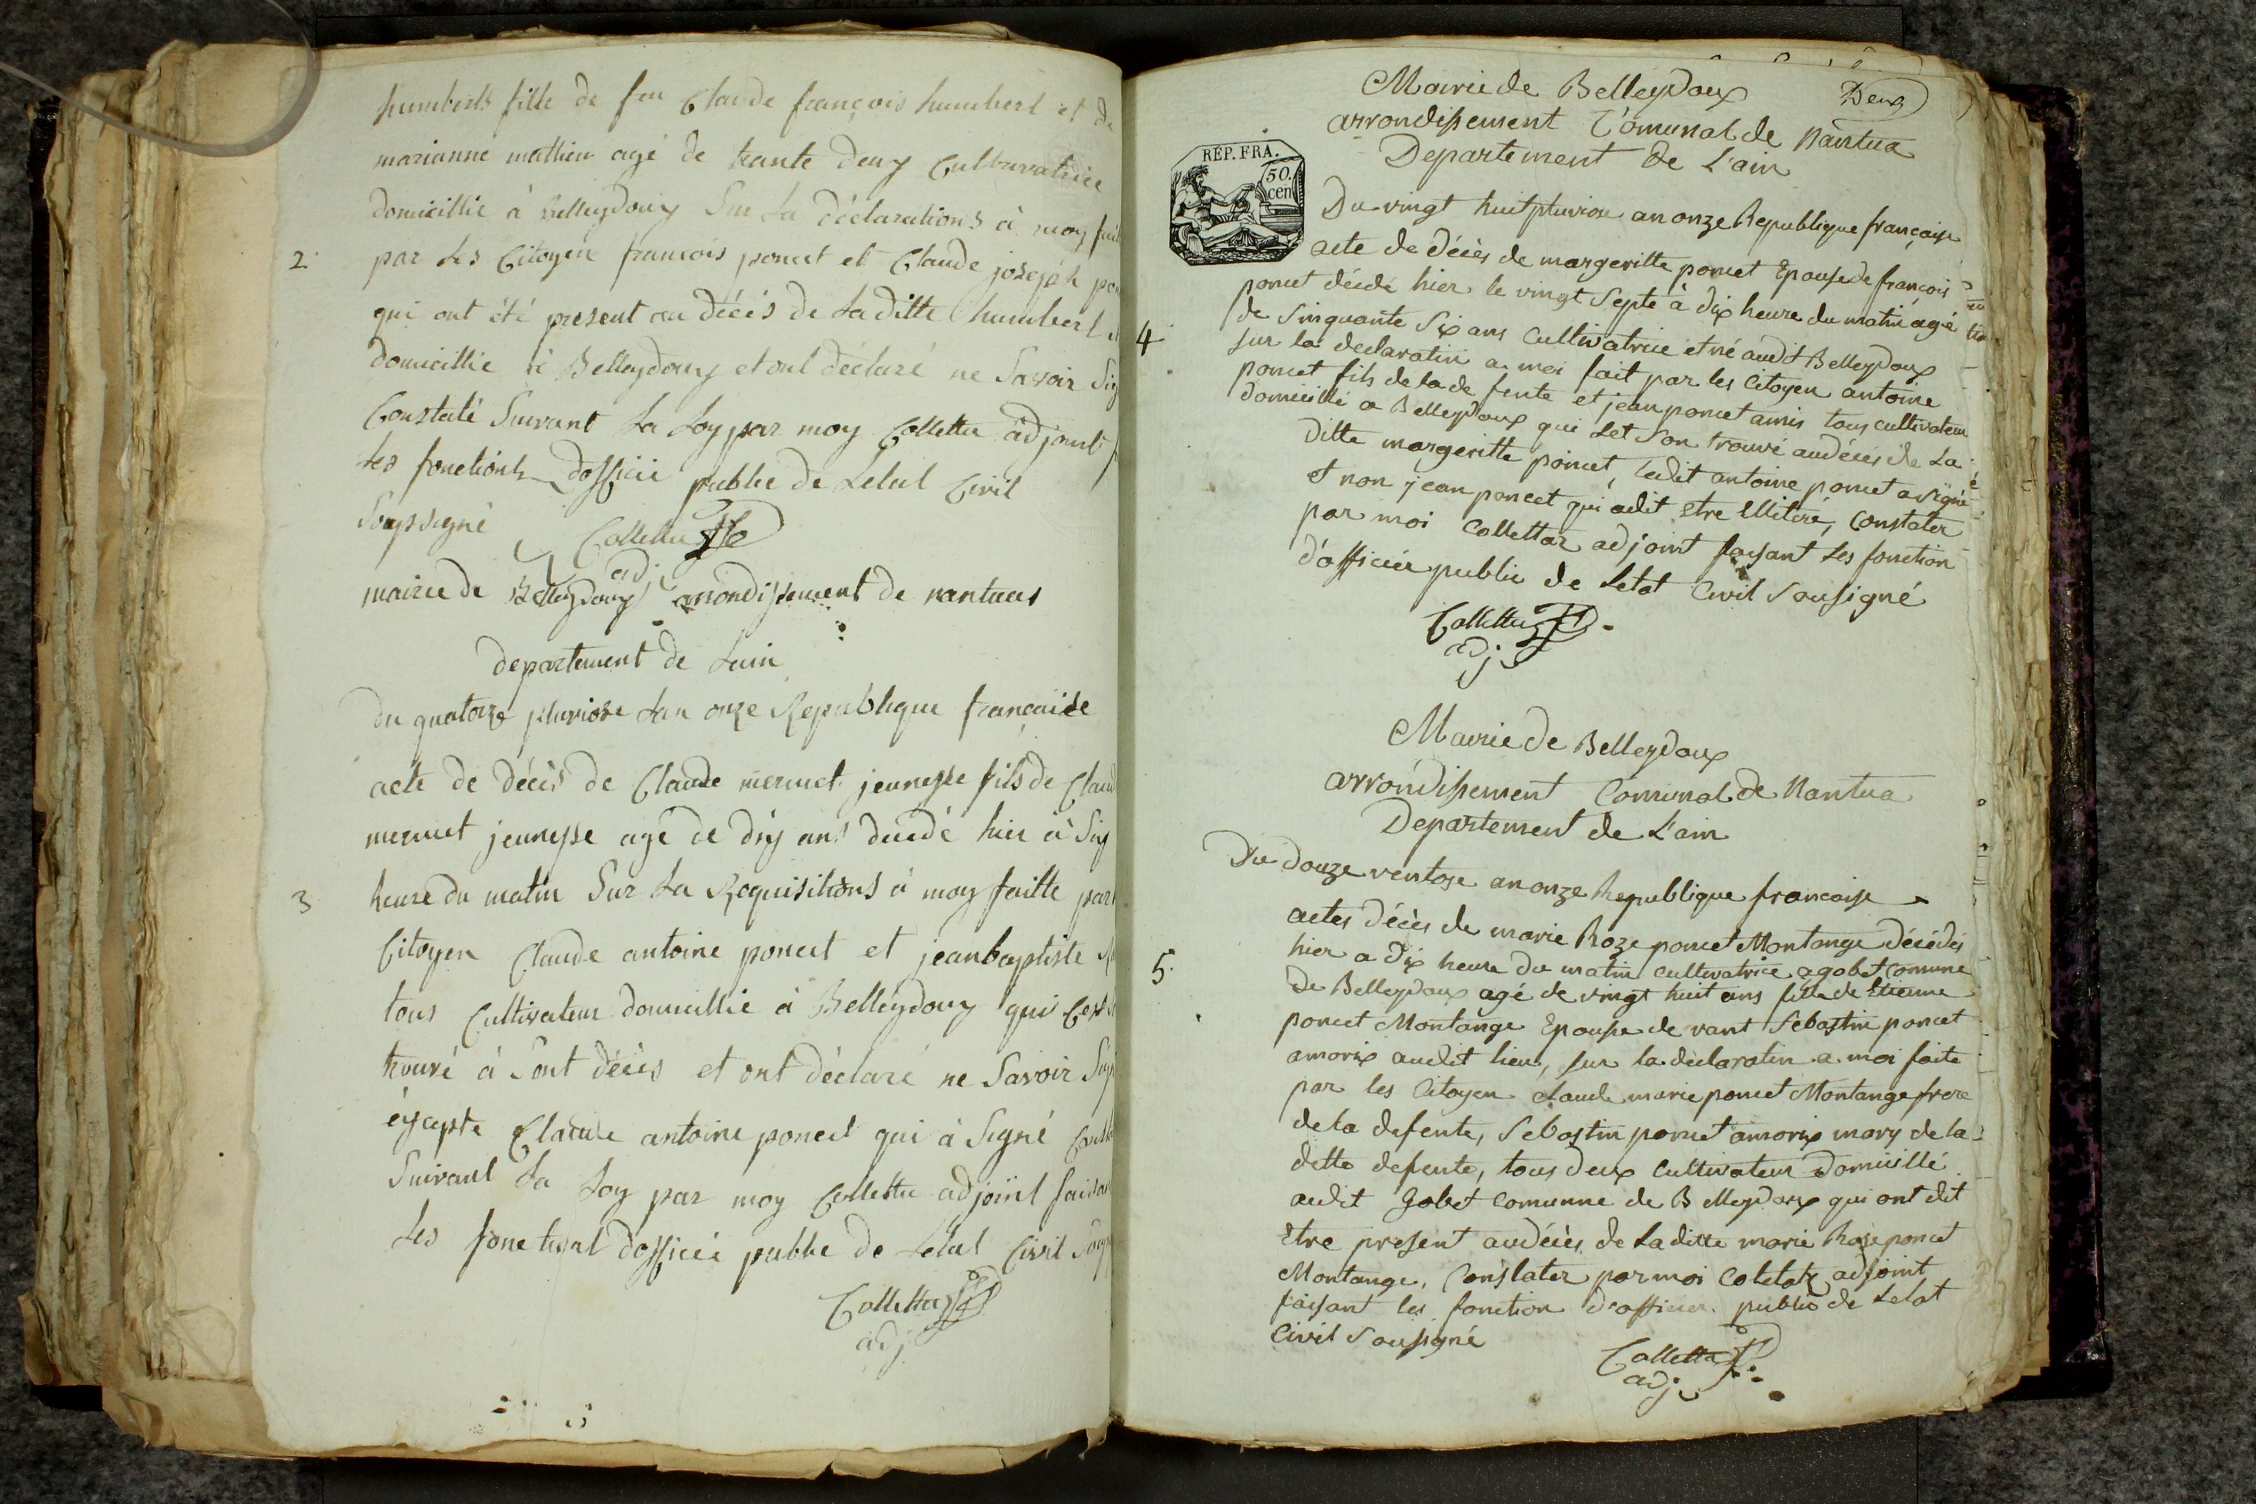 humberts fille de feu Claude françois humbert et de
marianne mathieu agé de trante deux Cultuvatrice
domicillie à belleydoux Sur La déclarations à moy fait
2
par Les Citoyen francois poncet et Claude joseph
qui ont été present au décés de Laditte humbert
domicillie à Belleydoux et ont déclaré ne Savoir Sig
Constaté Suivant La Loy par moy Collettaz adjoint
Les fonctions dofficié publie de Letat Civil
Soussigné Collettaz
adj
mairie de Belleydoux arrondissement de nantuas
departement de Lain
du quatorze pluviose Lan onze Republique françaisse
acte de décès de Claude mermet jeunesse fils de Claud
mermet jeunesse agé de dix ans décédé hier à Six
3
heure du matin Sur La Requisitions à moy faitte par
Citoyen Claude antoine poncet et jeanbaptiste
tous Cultivateur domicillié à Belleydoux qui Cest
trouvé à Sont décès et ont déclaré ne Savoir Sig
éxcepte Claude antoine poncet qui à Signé
Suivant La Loy par moy Collettaz adjoint faisan
Les fonctiont dofficié publie de Letat Civil Sous
Collettaz
adj
Mairie de Belleydoux
Deux
arrondissement Comunal de Nantua
Departement de L'ain
RÉP. FRA.
50.
cen
Du vingt huit pluviose an onze Republique française
acte de décès de margeritte poncet Epouse de françois
poncet décédé hier le vingt Septe à dix heure du matin agé
4
de Sinquante Six ans Cultivatrice et né audit Belleydoux
sur la declaration a moi fait par les Citoyen antoine
poncet fils de la defente et jean poncet amis tous cultivateur
domicillié a Belleydoux qui Set Son trouvé au décès de La
ditte margeritte poncet, ledit antoine poncet a Signé
et non jean poncet qui adit Etre Illitéré, Constater
par moi Collettaz adjoint faisant Les fonction
d'officier public de Letat Civil Sousigné
Collettaz
adj
Mairie de Belleydoux
arrondissement Comunal de Nantua
Departement de L'ain
Du douze ventose an onze Republique francaise
actes décès de marie Roze poncet Montange décédés
hier a dix heure du matin cultivatrice a gobet Comune
5
de Belleydoux agé de vingt huit ans fille de Etienne
poncet Montange Epouse de vant Sebastin poncet
amorix audit lieu, sur la déclaration a moi faite
par les Citoyen claude marie poncet Montange frere
de la defente, Sebastin poncet amorix mary de la
ditte defente, tous deux cultivateur domicillé
audit Gobet comunne de Belleydoux qui ont dit
Etre present au décès de laditte marie Rose poncet
Montange, Constater par moi Coletaz adjoint
faisant les fonction d'officier public de Letat
Civil Sousigné
Collettaz
adj